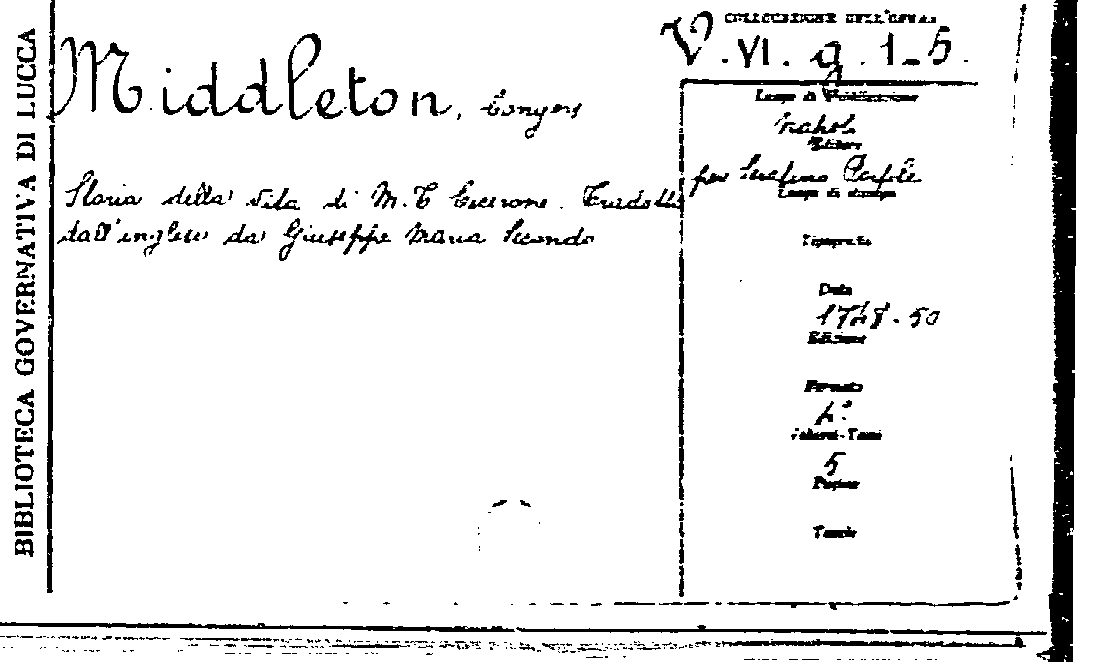 BIBLIOTECA GOVERNATIVA DI LUCCA
Middleton, Conyers
Storia della vita di M. T Cicerone. Tradotta
dall'inglese da Giuseppe Maria Secondo
COLLOCAZIONE DELL'OPERA
V. VI. g. 1-5.
Luogo di Pubblicazione
Napoli
Editore
per Serafino Porsile
Luogo di stampa
Tipografo
Data
1748-50
Edizione
Formato
4º
Volumi-Tomi
5
Pagine
Tavole